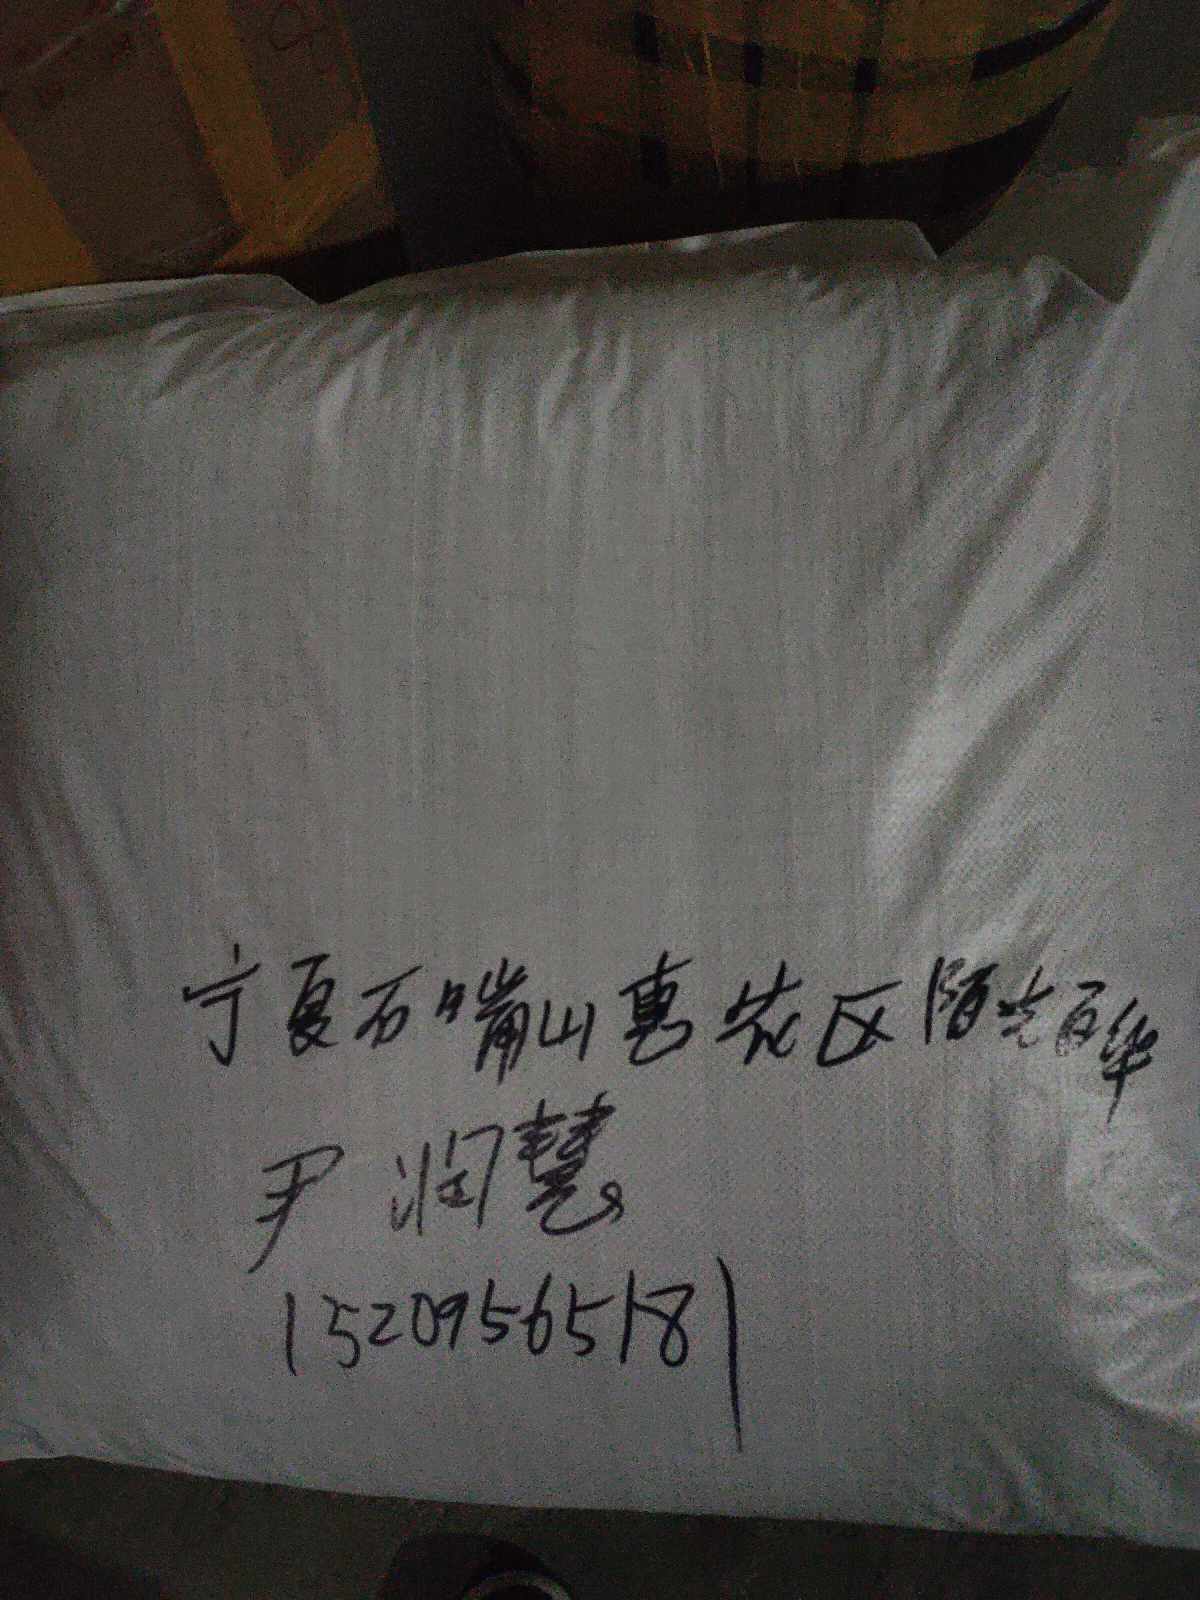 宁夏石嘴山惠农区陌上百华
尹润慧
15209565181